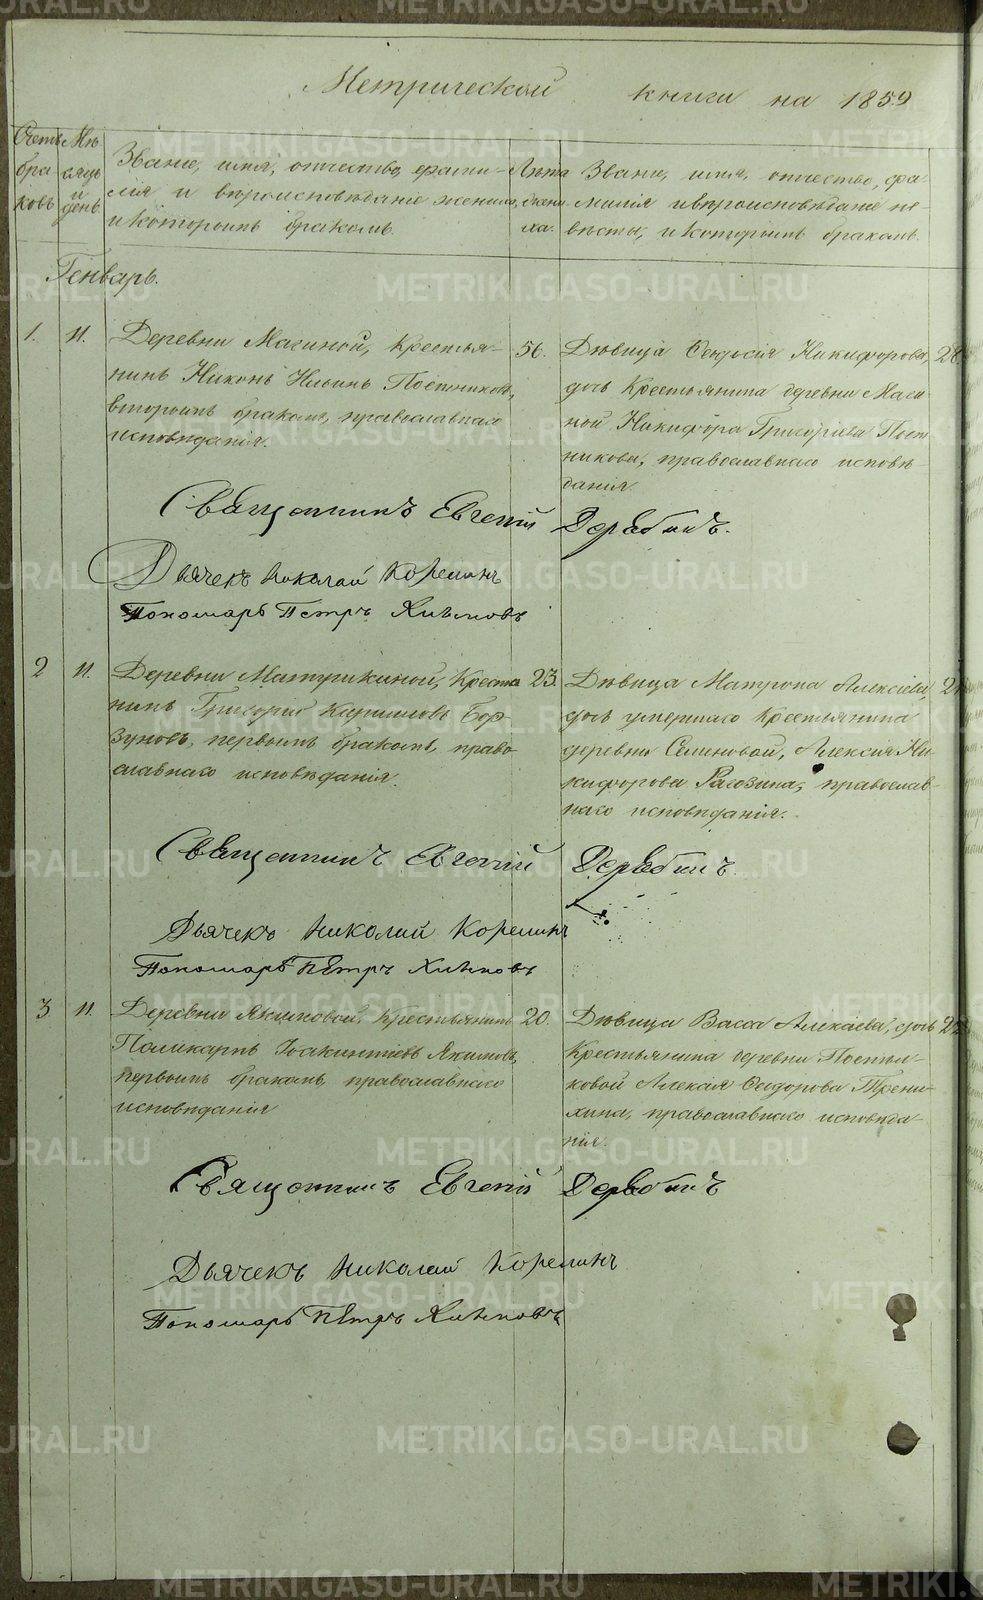 Метрической книги на 1859
Счетъ бра ковъ
Мѣ сяцъ и день
Званіе, имя, отчество, фами-
лія и вѣроисповѣданіе жениха,
и которымъ бракомъ.
Лѣта жени ха.
Званіе, имя, отчество, фа-
милія и вѣроисповѣданіе не-
вѣсты, и которымъ бракомъ.
Генварь.
1. 11.
Деревни Магиной, Крестья-
нинъ Никонъ Ильинъ Постниковъ,
вторымъ бракомъ, православнаго
исповѣданія.
56.
Дѣвица Ѳеодосія Никифорова,
дочь Крестьянина деревни Маги-
ной Никифора Григорьева Пост-
никова, православнаго исповѣ-
данія.
Священникъ Евгеній Дерябинъ.
Дьячекъ Николай Корелинъ
Пономарь Петръ Хлѣповъ
2 11.
Деревни Крестья
нинъ Григорій Борзуновъ, первымъ бракомъ, право
славнаго исповѣданія.
23.
Дѣвица Матрона Алексіева,
дочь умершаго Крестьянина
деревни Селиновой, Алексія Ни-
кифорова Рагозина, православ-
наго исповѣданія.
Священникъ Евгеній Дерябинъ.
Дьячекъ Николай Корелинъ
Пономарь Петръ
3 11.
Деревни Якимовой, Крестьянинъ
Поликарпъ Іоакинтіевъ Якимовъ,
первымъ бракомъ, православнаго
исповѣданія
20.
Дѣвица Васса Алексіева, дочь
Крестьянина деревни
Алексія Ѳеодорова Трени-
хина, православнаго исповѣда-
нія.
Священникъ Евгеній Дерябинъ
Дьячекъ Николай Корелинъ
Пономарь Петръ
METRIKI.GASO-URAL.RU